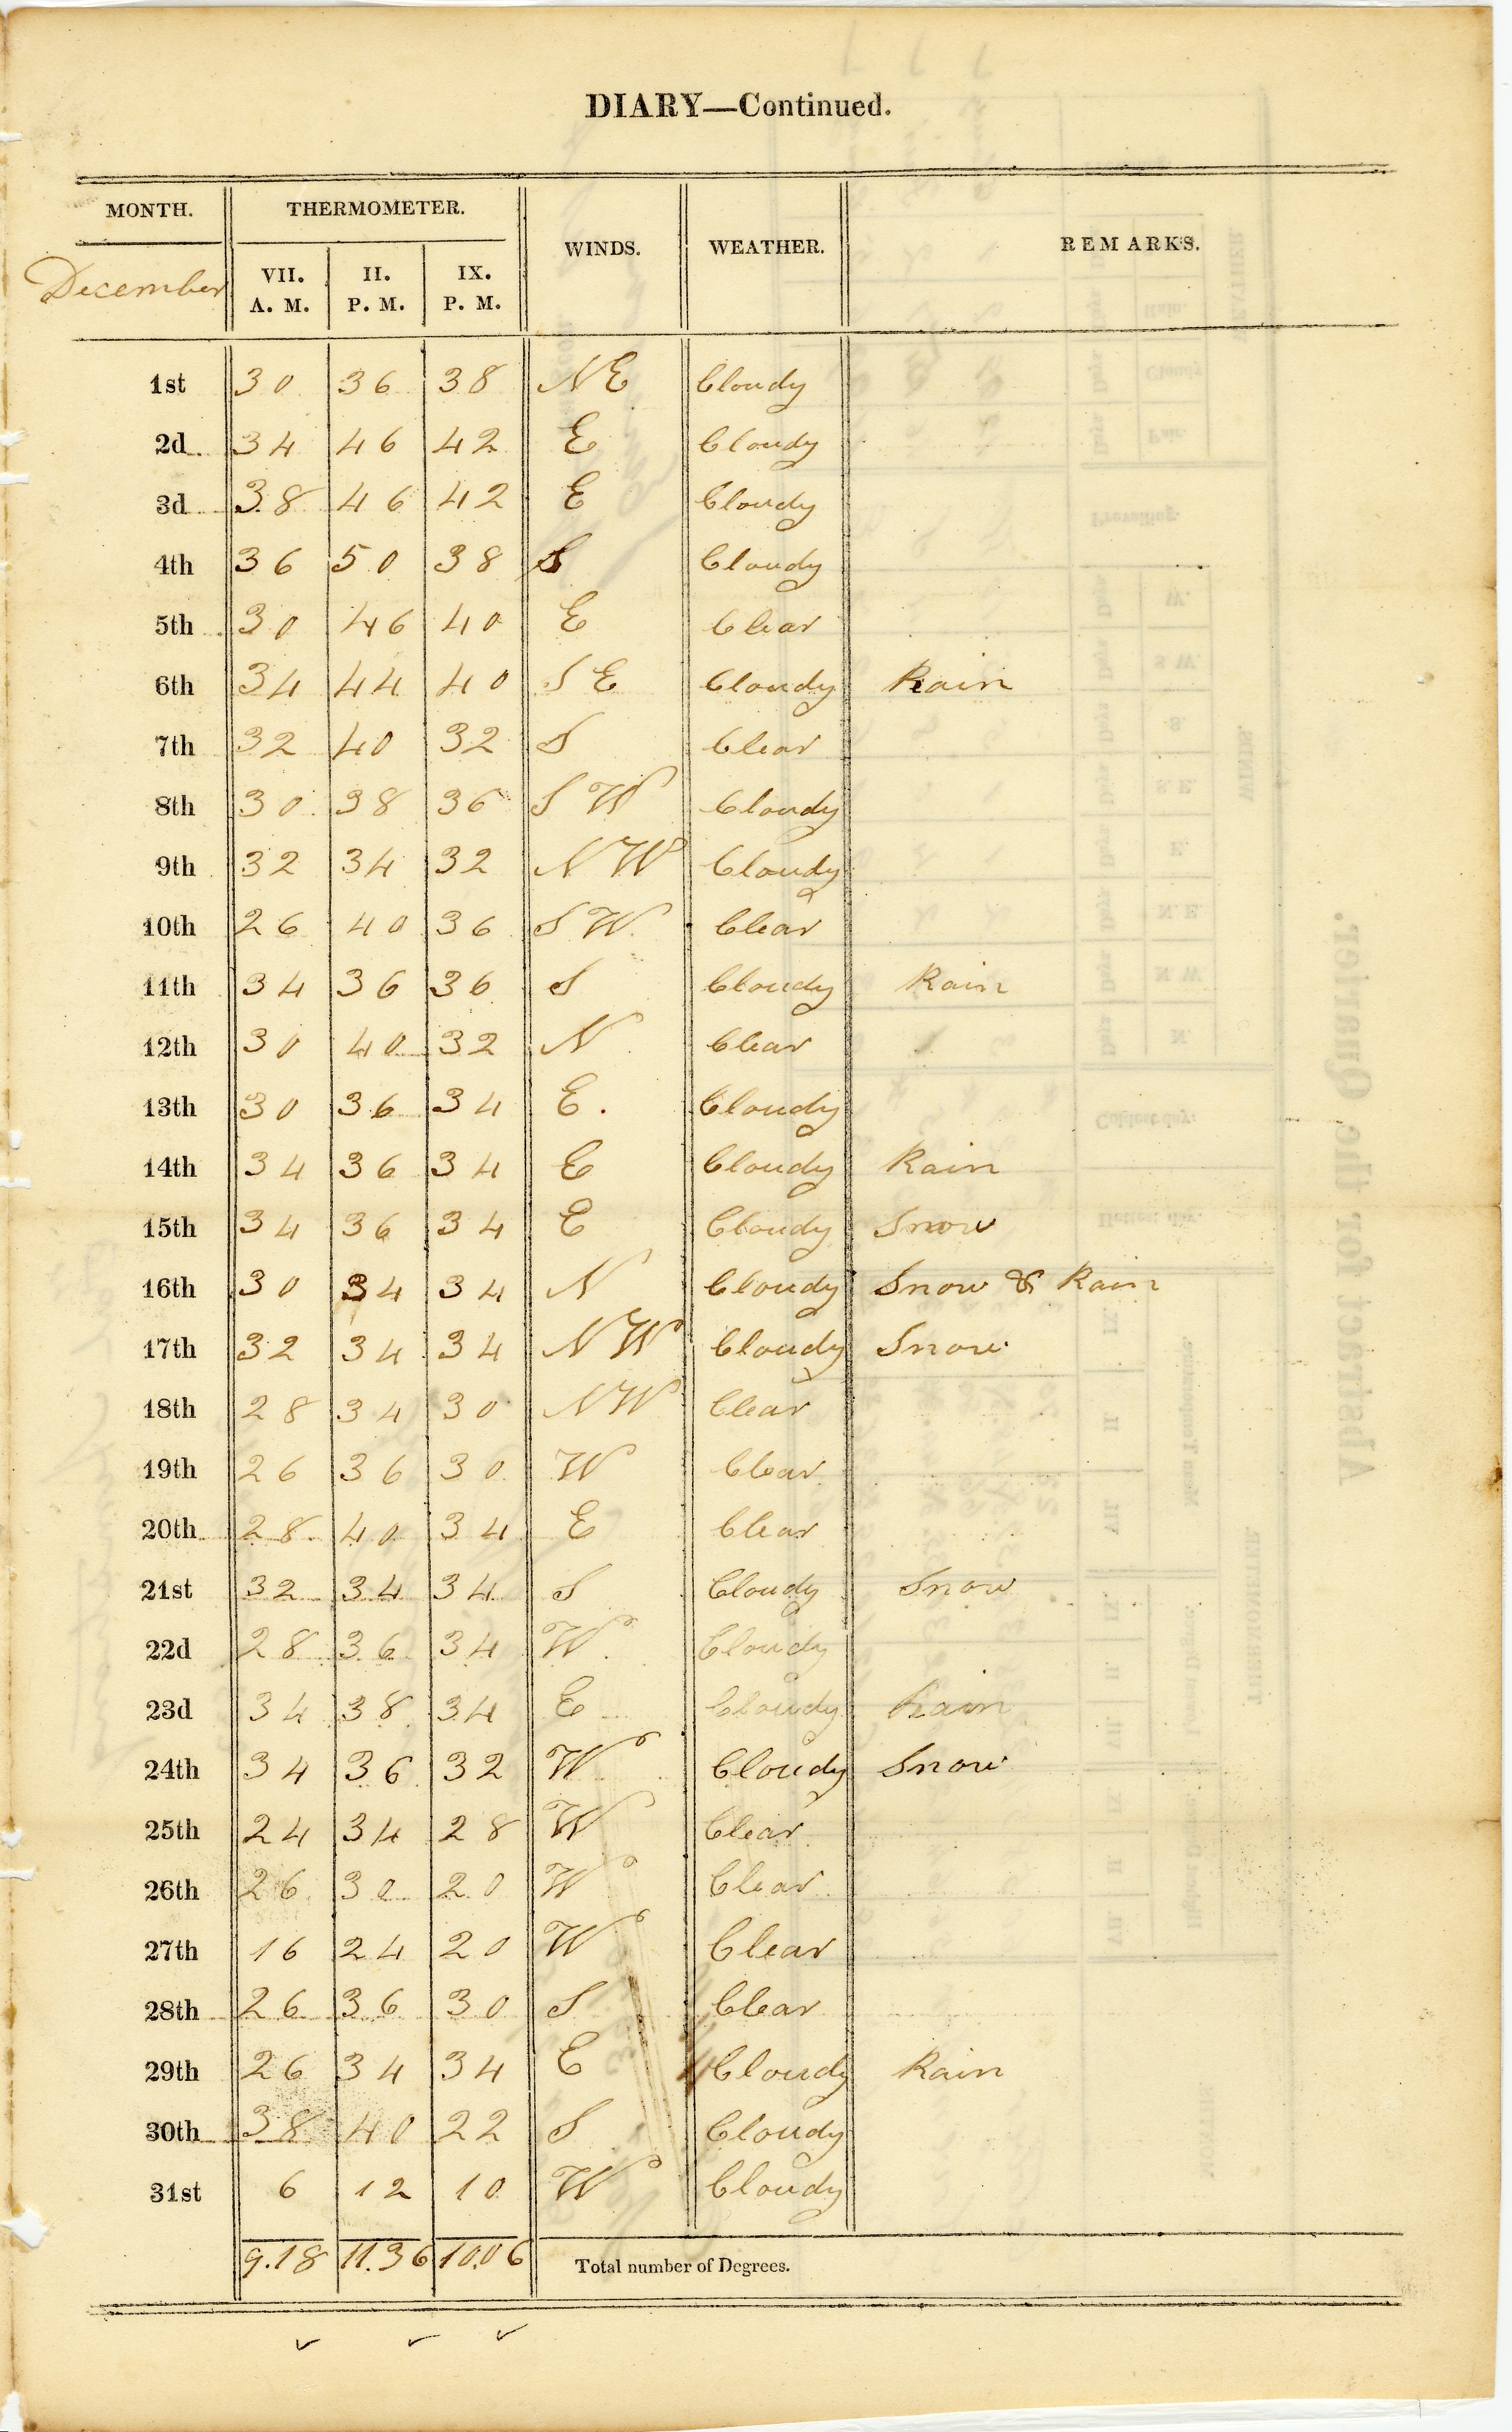 DIARY—Continued.
MONTH. THERMOMETER. WINDS. WEATHER. REMARKS.
December VII. A. M. II. P. M. IX. P. M.
1st 30 36 38 NE Cloudy
2d 34 46 42 E Cloudy
3d 38 46 42 E Cloudy
4th 36 50 38 S Cloudy
5th 30 46 40 E Clear
6th 34 44 40 SE Cloudy Rain
7th 32 40 32 S Clear
8th 30 38 36 SW Cloudy
9th 32 34 32 NW Cloudy
10th 26 40 36 SW Clear
11th 34 36 36 S Cloudy Rain
12th 30 40 32 N Clear
13th 30 36 34 E. Cloudy
14th 34 36 34 E Cloudy Rain
15th 34 36 34 E Cloudy Snow
16th 30 34 34 N Cloudy Snow & Rain
17th 32 34 34 NW Cloudy Snow
18th 28 34 30 NW Clear
19th 26 36 30 W Clear
20th 28 40 34 E Clear
21st 32 34 34 S Cloudy Snow
22d 28 36 34 W Cloudy
23d 34 38 34 E Cloudy Rain
24th 34 36 32 W Cloudy Snow
25th 24 34 28 W Clear
26th 26 30 20 W Clear
27th 16 24 20 W Clear
28th 26 36 30 S Clear
29th 26 34 34 E Cloudy Rain
30th 38 40 22 S Cloudy
31st 6 12 10 W Cloudy
9.18 11.36 10.06 Total number of Degrees.